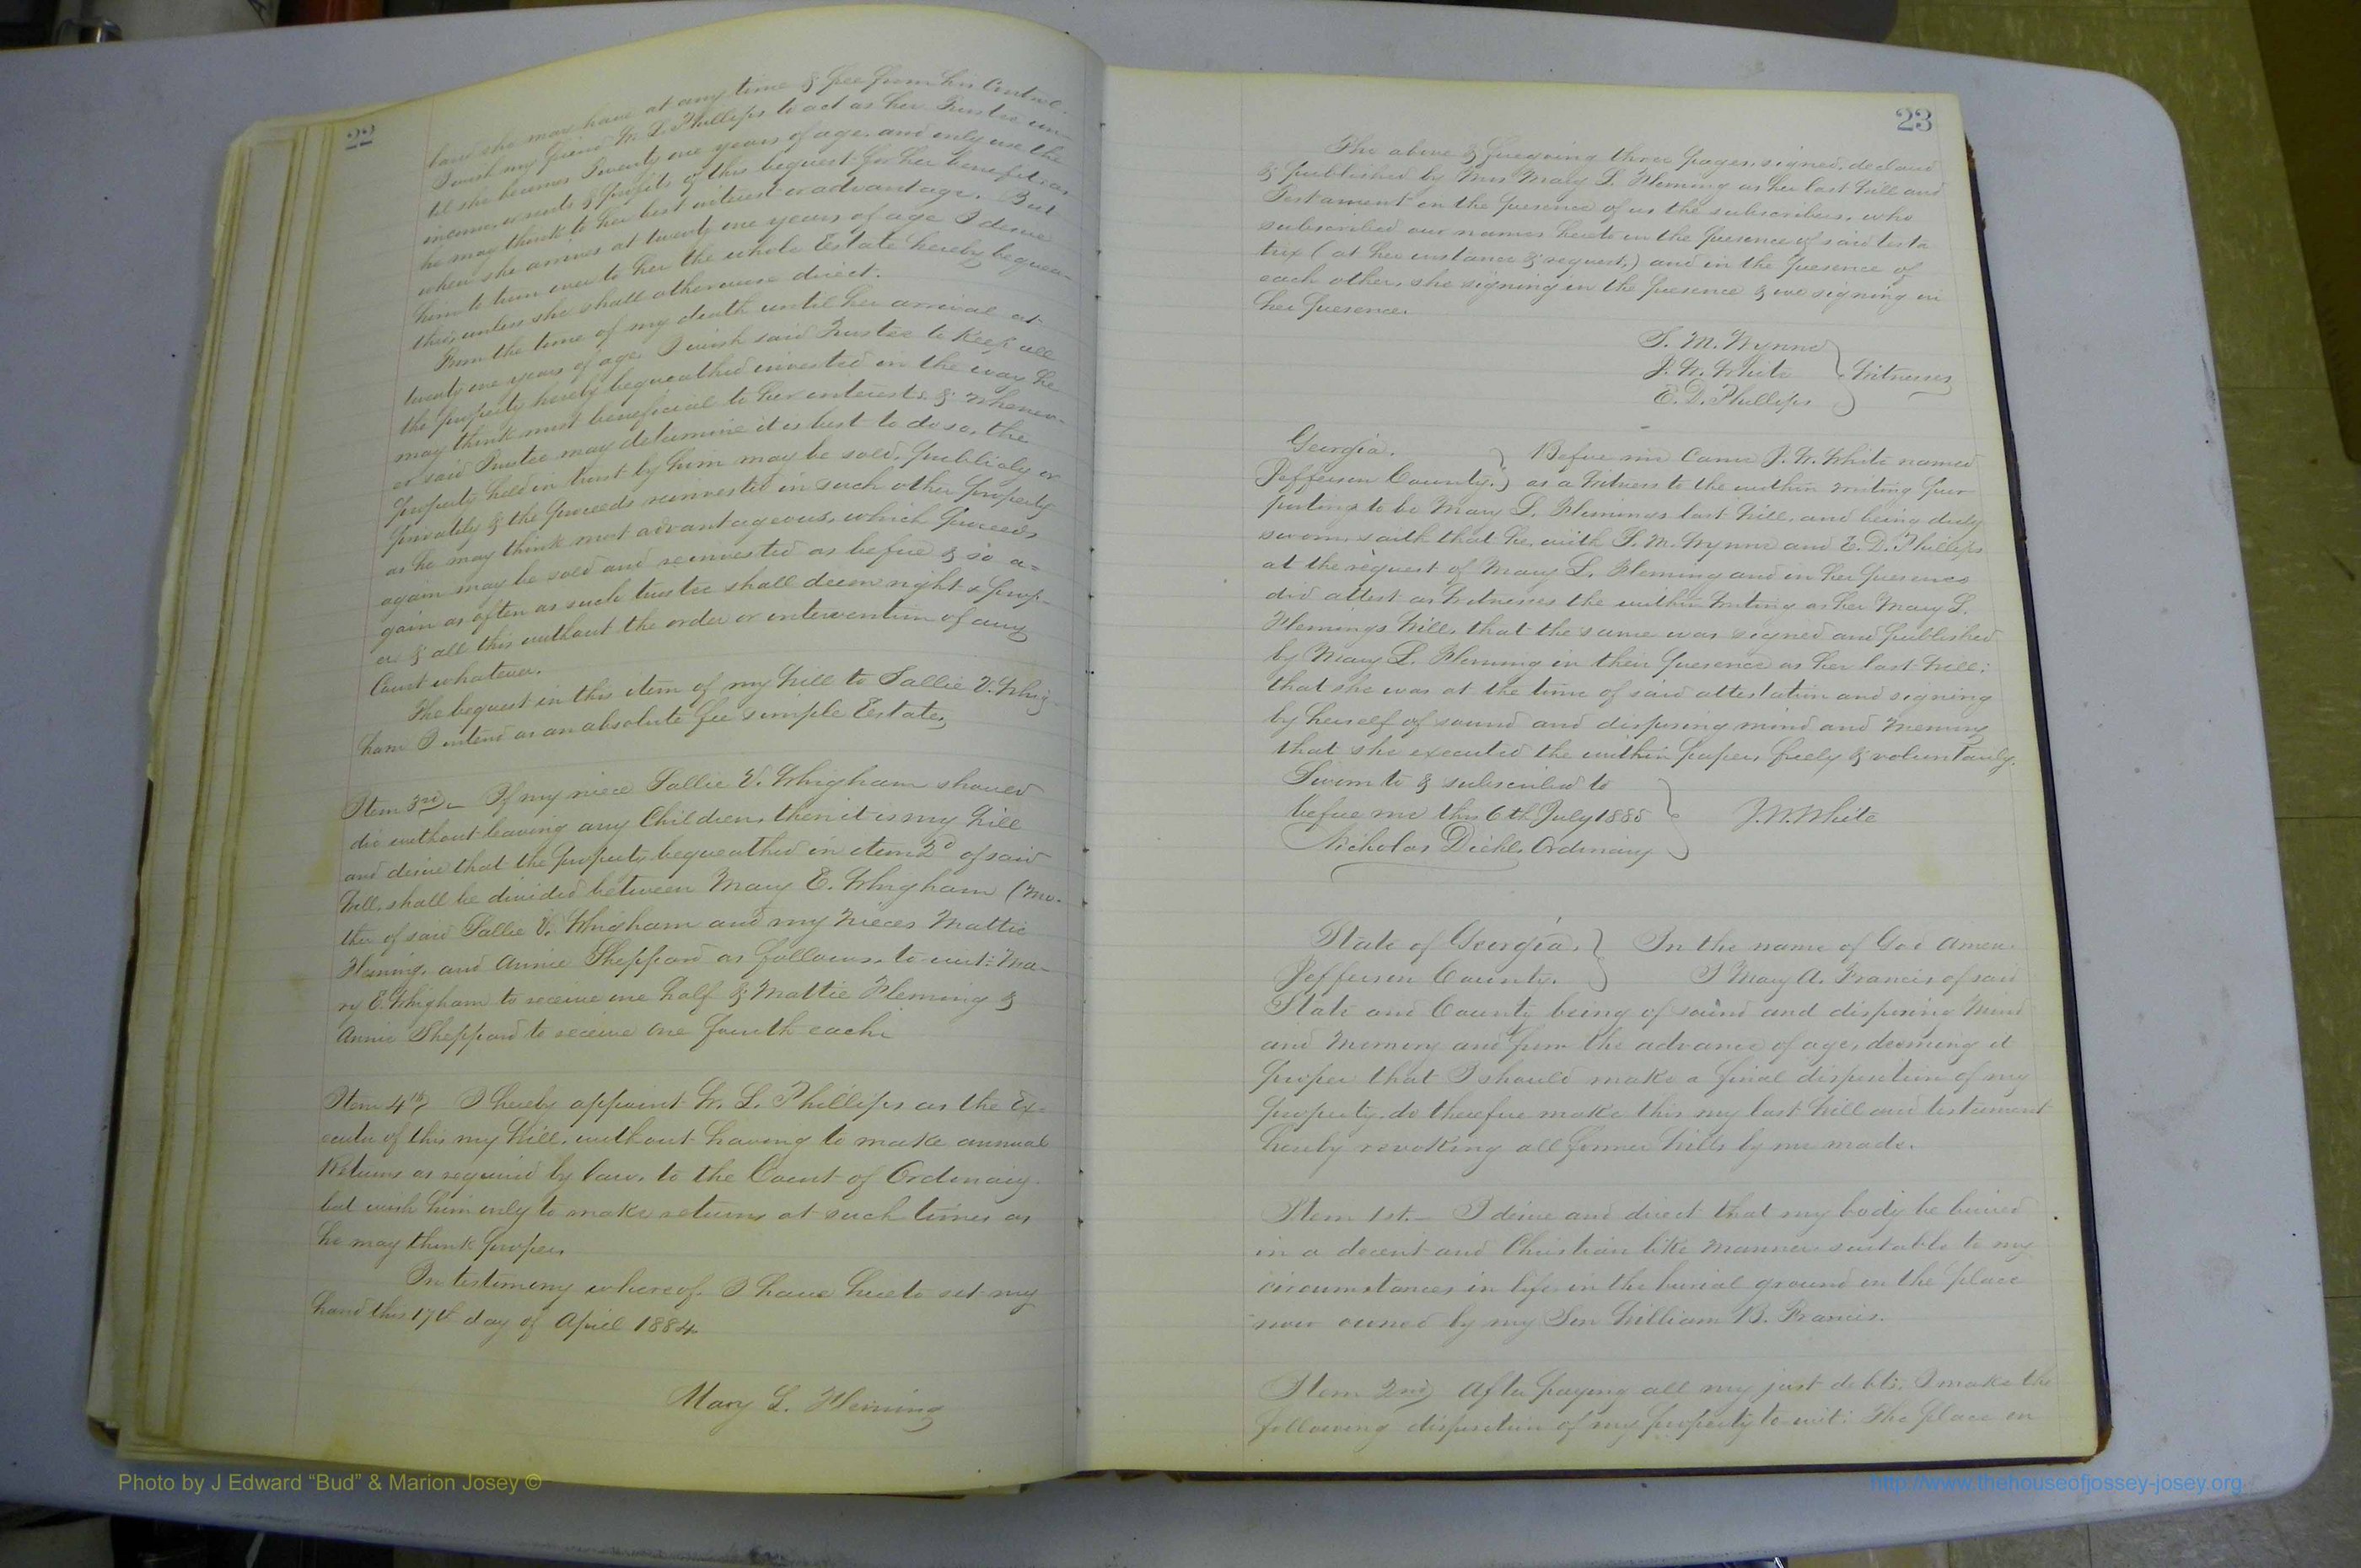 22
band she may have at any time & free from his Control.
I wish my friend W. L. Phillips to act as her Trustee un-
til she becomes Twenty one years of age, and only use the
incomes, rents & profits of this bequest for her benefit as
he may think to her best interest or advantage. But
when she arrives at twenty one years of age I desire
him to turn over to her the whole Estate hereby bequea-
thed, unless she shall otherwise direct.
From the time of my death until her arrival at
twenty one years of age, I wish said Trustee to Keep all
the property hereby bequeathed invested in the way he
may think most beneficial to her interests & whenev-
er said Trustee may determine it is best to do so, the
property held in trust by him may be sold, publicly or
privately & the proceeds reinvested in such other property
as he may think most advantageous, which proceeds
again may be sold and reinvested as before & so a-
gain as often as such trustee shall deem right & prop-
er & all this without the order or intervention of any
Court whatever.
The bequest in this item of my Will to Sallie V. Whig-
ham I intend as an absolute fee simple Estate,
Item 3rd.- If my niece Sallie V. Whigham should
die without leaving any Children, then it is my Will
and desire that the property bequeathed in item 2d of said
Will, shall be divided between Mary E. Whigham (Mo-
ther of said Sallie V. Whigham and my Nieces Mattie
Fleming, and Annie Sheppard as follows, to-wit: Ma-
ry E. Whigham to receive one half & Mattie Fleming &
Annie Sheppard to receive one fourth each.
Item 4th, I hereby appoint W. L. Phillips as the Ex-
ecutor of this my Will, without having to make annual
Returns as required by law, to the Court of Ordinary
but wish him only to make returns at such times as
he may think proper.
In testimony whereof I have hereto set my
hand this 17th day of April 1884
Mary L. Fleming
23
The above & foregoing three pages, signed, declared
& published by Mrs Mary L. Fleming as her last Will and
Testament in the presence of us the subscribers, who
subscribed our names hereto in the presence of said testa
trix (at her instance & request,) and in the presence of
each other, she signing in the presence & we signing in
her presence.
S. M. Wynne
J. W. White } Witnesses
E. D. Phillips
Georgia. } Before me Came J. W. White named
Jefferson County. } as a Witness to the within writing pur
porting to be Mary L. Flemings last Will, and being duly
sworn, saith that he, with S. M. Wynne and E. D. Phillips
at the request of Mary L. Fleming and in her presence
did attest as Witnesses the within Writing as her Mary L.
Flemings Will, that the same was signed and published
by Mary L. Fleming in their presence as her last Will;
that she was at the time of said attestation and signing
by herself of sound and disposing mind and Memory
that she executed the within paper, freely & voluntarily.
Sworn to & subscribed to
before me this 6th July 1885 } J. W. White
Nicholas Diehl, Ordinary
State of Georgia, } In the name of God Amen.
Jefferson County. } I Mary A. Francis of said
State and County being of sound and disposing Mind
and Memory and from the advance of age, deeming it
proper that I should make a final disposition of my
property, do therefore make this my last Will and testament
hereby revoking all former Wills by me made.
Item 1st.- I desire and direct that my body be buried
in a decent and Christian like Manner suitable to my
circumstances in life in the burial ground on the place
now owned by my Son William B. Francis.
Item 2nd, After paying all my just debts, I make the
following disposition of my property to-wit: The place on
Photo by J Edward “Bud” & Marion Josey ©
http://www.thehouseofjossey-josey.org